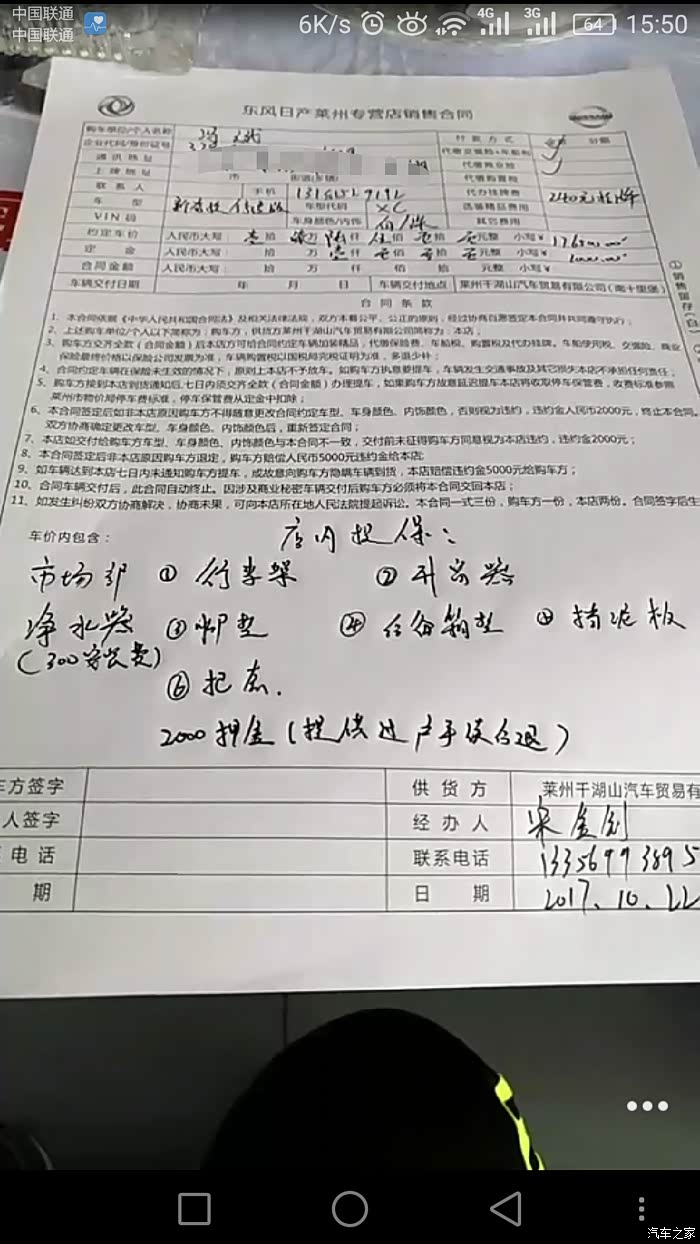 中国联通
中国联通
6K/s 4G 3G 64 15:50
东风日产莱州专营店销售合同
购车单位/个人名称 付款方式 全款 分期
企业代码/身份证号 代缴交强险+车船税
通讯地址 代缴商业险
上牌地址 市 街道(乡镇) 代缴购置税
联系人 手机 代办挂牌费
车型 车型代码 XC 选装精品费用
VIN码 车身颜色/内饰 其它费用
约定车价 人民币大写: 拾 万 仟 佰 拾 元整 小写¥
定金 人民币大写: 拾 万 仟 佰 拾 元整 小写¥
合同金额 人民币大写: 拾 万 仟 佰 拾 元整 小写¥
车辆交付日期 年 月 日 车辆交付地点 莱州千湖山汽车贸易有限公司(南十里堡)
合同条款
1、本合同依据《中华人民共和国合同法》及相关法律法规,双方本着公平、公正的原则,经过协商自愿签定本合同并共同遵守执行;
2、上述购车单位/个人以下简称为:购车方,供货方莱州千湖山汽车贸易有限公司简称为:本店;
3、购车方交齐全款(合同金额)后本店方可给合同约定车辆加装精品,代缴保险费、车船税、购置税及代办挂牌。车船使用税、交强险、商业
保险最终价格以保险公司发票为准,车辆购置税以国税局完税证明为准,多退少补;
4、合同约定车辆在保险未生效的情况下,原则上本店不予放车。如购车方执意要提车,车辆发生交通事故及其它损失本店不承担任何责任;
5、购车方接到本店到货通知后,七日内须交齐全款(合同金额)办理提车,如果购车方故意延迟提车本店将收取停车保管费,收费标准参照
莱州市物价局停车费标准,停车保管费从定金中扣除;
6、本合同签定后如非本店原因购车方不得随意更改合同约定车型、车身颜色、内饰颜色,否则视为违约,违约金人民币2000元,终止本合同。
双方协商确定更改车型、车身颜色、内饰颜色后,重新签定合同;
7、本店如交付给购车方车型、车身颜色、内饰颜色与本合同不一致,交付前未征得购车方同意视为本店违约,违约金2000元;
8、本合同签定后非本店原因购车方退定,购车方赔偿人民币5000元违约金给本店;
9、如车辆达到本店七日内未通知购车方提车,或故意向购车方隐瞒车辆到货,本店赔偿违约金5000元给购车方;
10、合同车辆交付后,此合同自动终止。因涉及商业秘密车辆交付后购车方必须将本合同交回本店;
11、如发生纠纷双方协商解决,协商未果,可向本店所在地人民法院提起诉讼。本合同一式三份,购车方一份,本店两份。合同签字后生
车价内包含: 店内投保:
市场部 ①行李架 ②升窗器
净水器 ③脚垫 ④后备箱垫 ⑤挡泥板
(300安装费)
⑥把套.
2000押金(提供过户手续后退)
车方签字 供货方 莱州千湖山汽车贸易有
人签字 经办人 宋金剑
电话 联系电话 13356993895
期 日期 2017.10.22
汽车之家